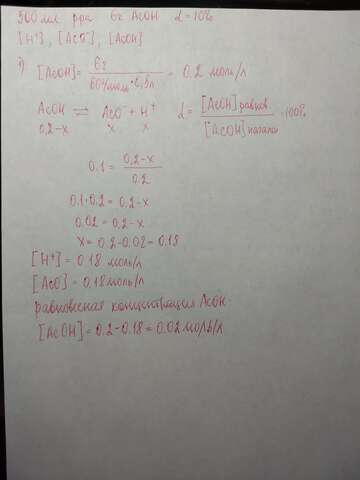 500 мл р-ра 6г AcOH α = 10%
[H⁺], [AcO⁻], [AcOH]
1) [AcOH] = 6г / 60г/моль·0,5л = 0.2 моль/л
AcOH ⇌ AcO⁻ + H⁺ α = [AcOH]равнов / [AcOH]начальн · 100%
0,2-x x x
0.1 = 0,2-x / 0.2
0.1·0.2 = 0.2-x
0.02 = 0.2-x
x = 0.2-0.02 = 0.18
[H⁺] = 0.18 моль/л
[AcO⁻] = 0.18 моль/л
равновесная концентрация AcOH:
[AcOH] = 0.2-0.18 = 0.02 моль/л